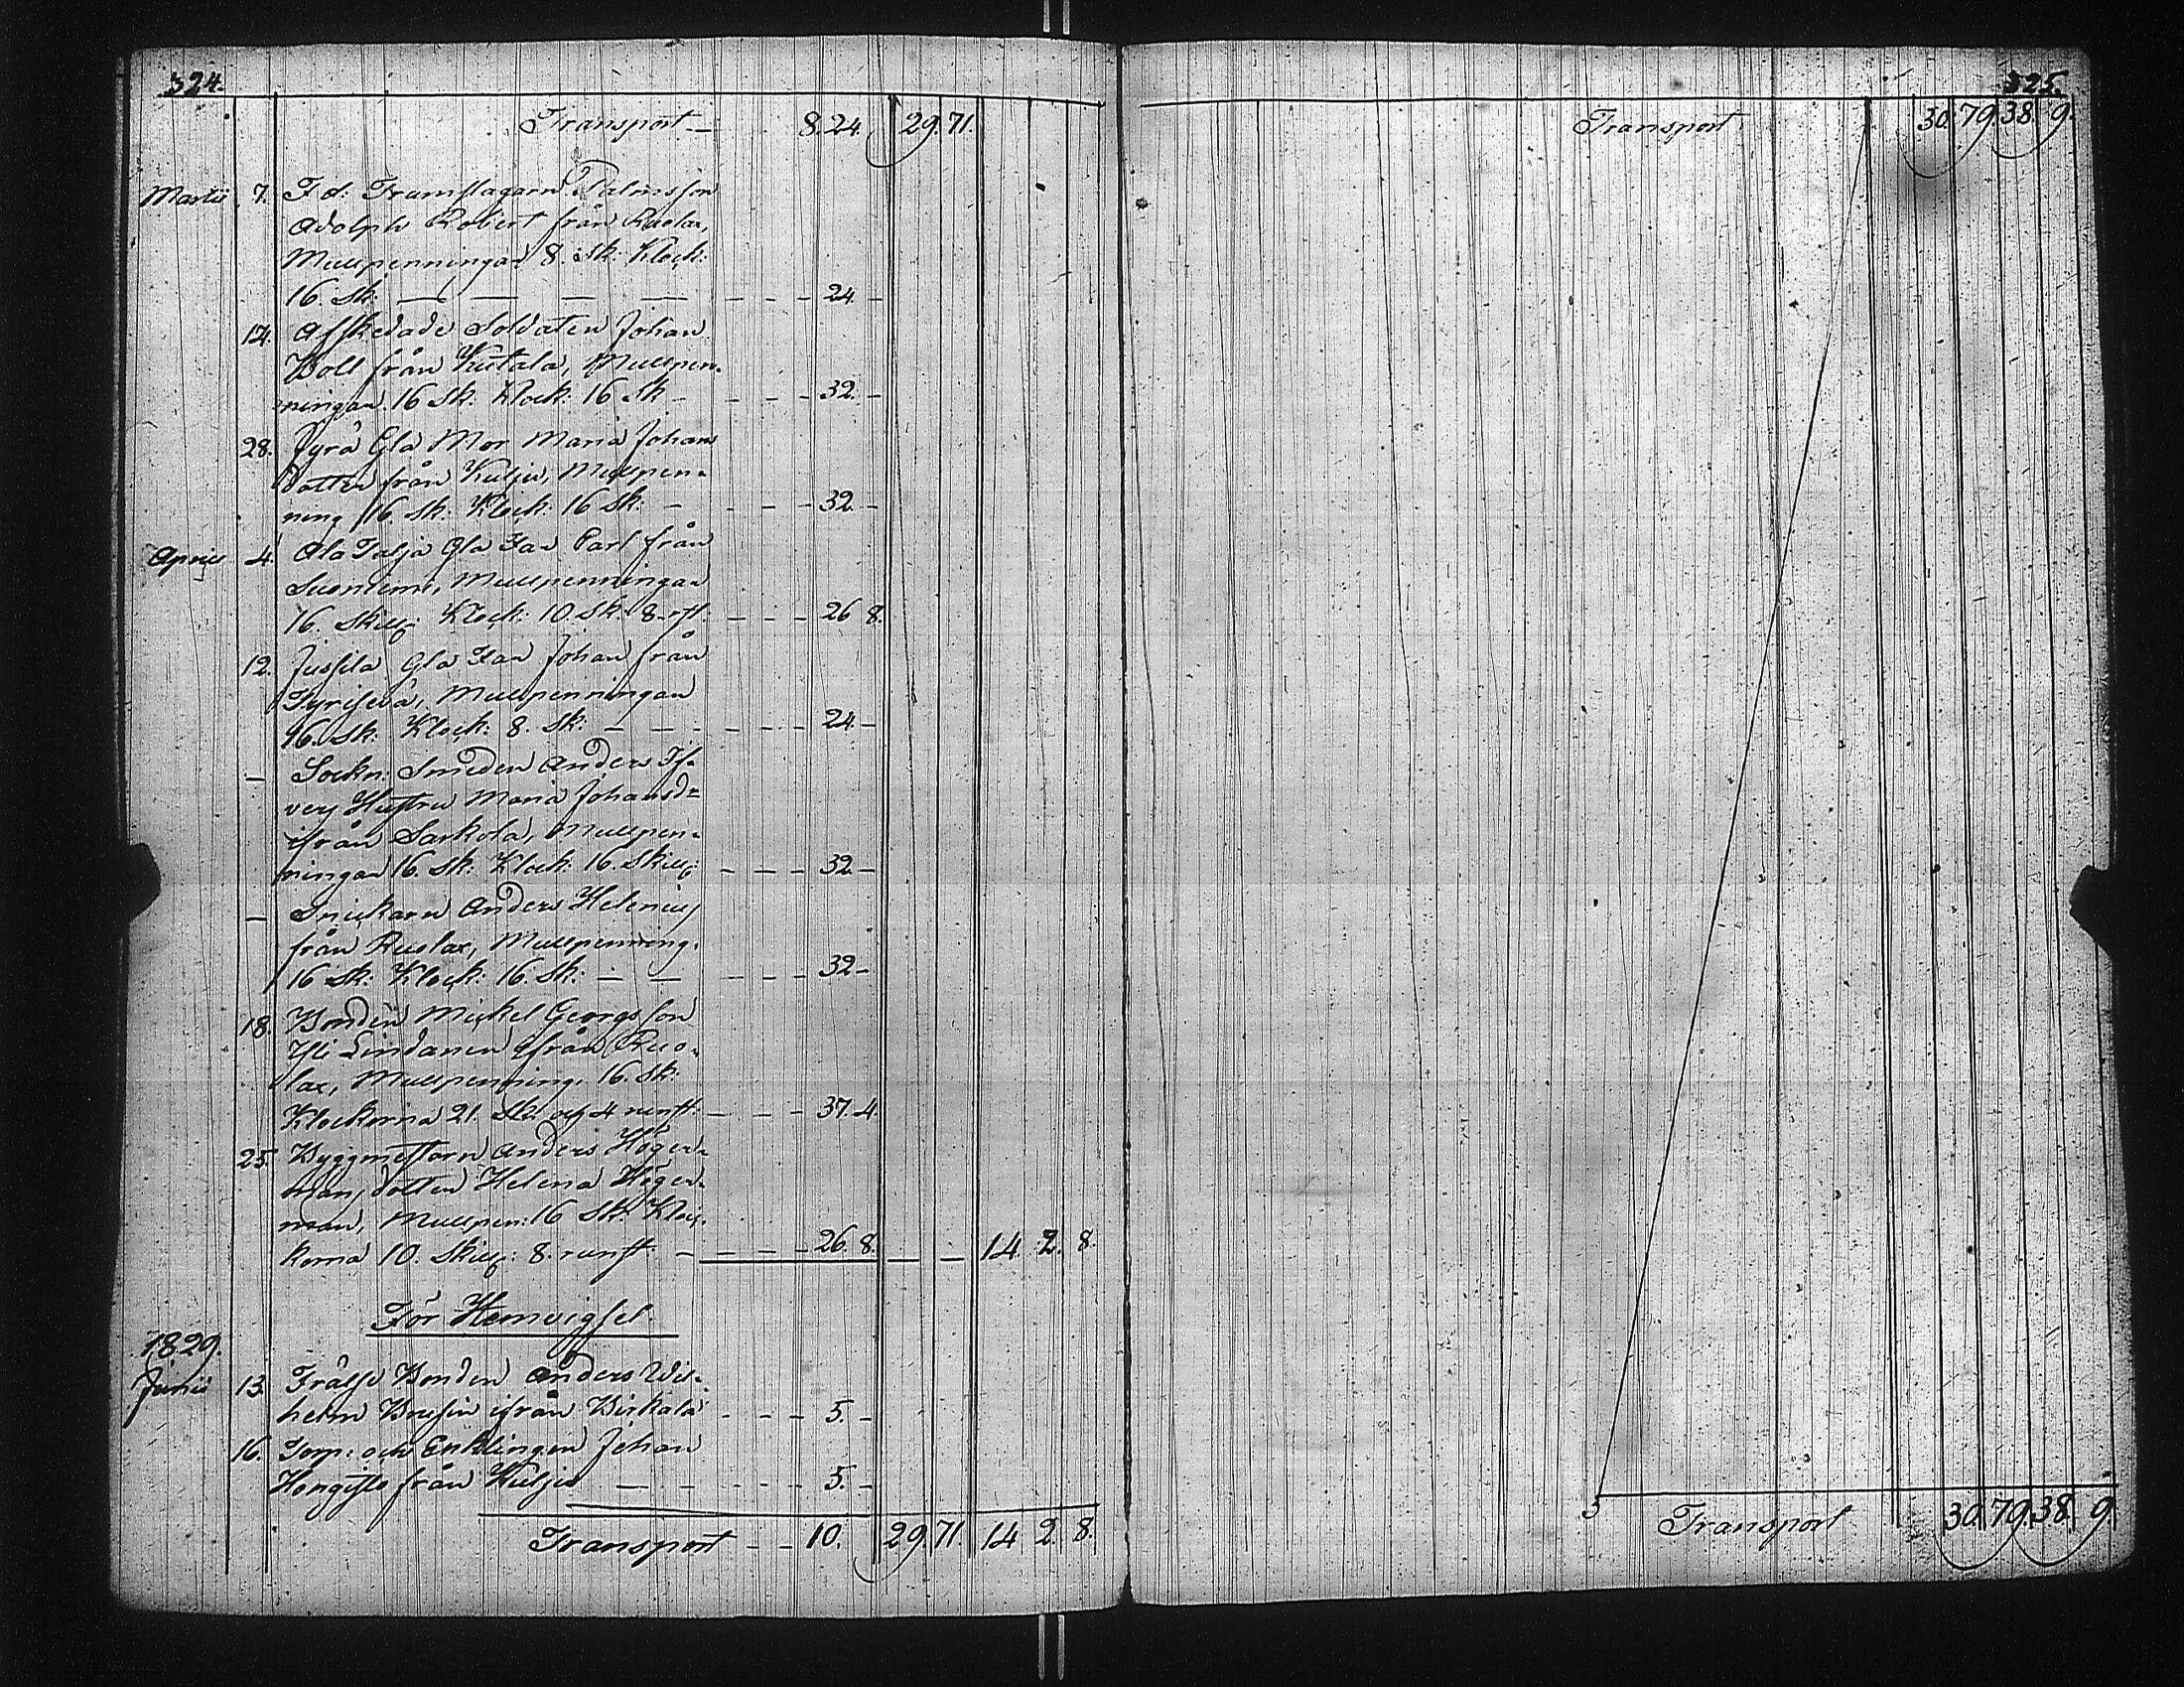 324.
Transport 8.24. 29.71.
Martii 7. F. d. Trumslagarn Palmsson
Adolph Robert från Ruolax,
Mullpenningar 8. sk. Klock:
16. sk: — — — — - - - 24. -
14. Afskedade Soldaten Johan
Boll från Kutala, Mullpen-
ningar. 16 sk. Klock: 16 sk - - - - 32. -
28. Jyrä Gla Mor Maria Johans
dotter från Kulju, Mullpen-
ning 16. sk. Klock: 16 sk: - - - 32 -
April 4. Ala Talja Gla Far Carl från
Suoniemi, Mullpenningar
16. Skillg: Klock: 10 sk. 8 rst. - - - 26 8.
12. Jussila Gla Far Johan från
Tyrisevä, Mullpenningar
16. sk. Klock: 8. sk: - - - - - 24. -
— Sockn: Smeden Anders
Hustru Maria Johansdr
ifrån Sarkola, Mullpen-
ningar 16. sk. Klock: 16. Skillg: - - - 32 -
— Snickarn Anders Helenius
från Ruolax, Mullpenning.
16 sk. Klock: 16. sk: - - - - 32 -
18. Bonden Mickel Georgsson
Yli Lindanen ifrån Ruo-
lax, Mullpenning. 16. sk.
Klockorna 21. sk och 4 runst. - - - 37. 4.
25. Byggmestarn Anders Höger-
mans dotter Helena Höger-
man, Mullpen: 16 sk. Kloc-
korna 10. Skillg: 8. runst. - - - - 26. 8. — — 14. 2. 8.
För Hemvigsel.
1829.
Junii 13. Frälse Bonden Anders Wil-
helm Brusin ifrån Birkala - - - 5. -
16. Torp: och Enklingen Johan
Hongisto från Kulju — - - - - 5. -
Transport - - 10. 29. 71. 14 2. 8.
325.
Transport 30. 79. 38. 9.
Transport 30. 79. 38. 9.